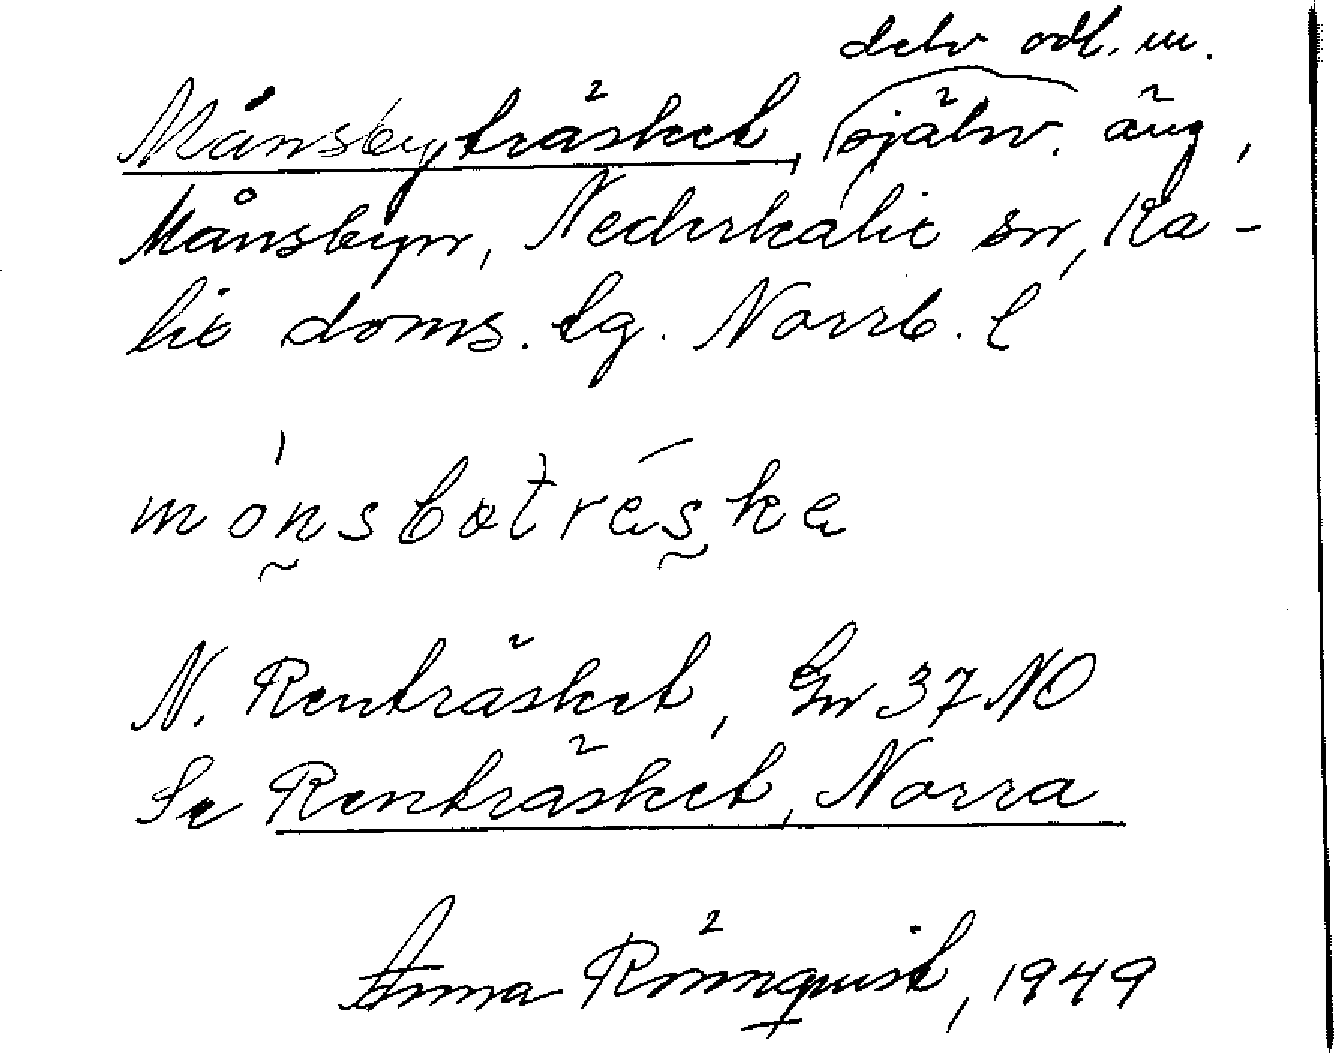 delv odl. m.
Månsbyträsket, själv. äng,
Månsbyn, Nederkalix sn, Ka-
lix doms. tg. Norrb. l
N. Renträsket, Gn 37 NO
Se Renträsket, Norra
Anna Rönnquist, 1949